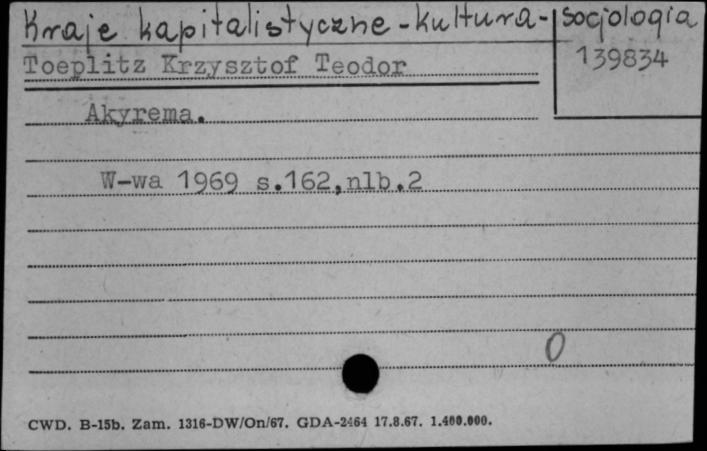 Kraje kapitalistyczne - kultura - socjologia
139834
Toeplitz Krzysztof Teodor
Akyrema.
W-wa 1969 s.162,nlb.2
0
CWD. B-15b. Zam. 1316-DW/On/67. GDA-2464 17.8.67. 1.400.000.